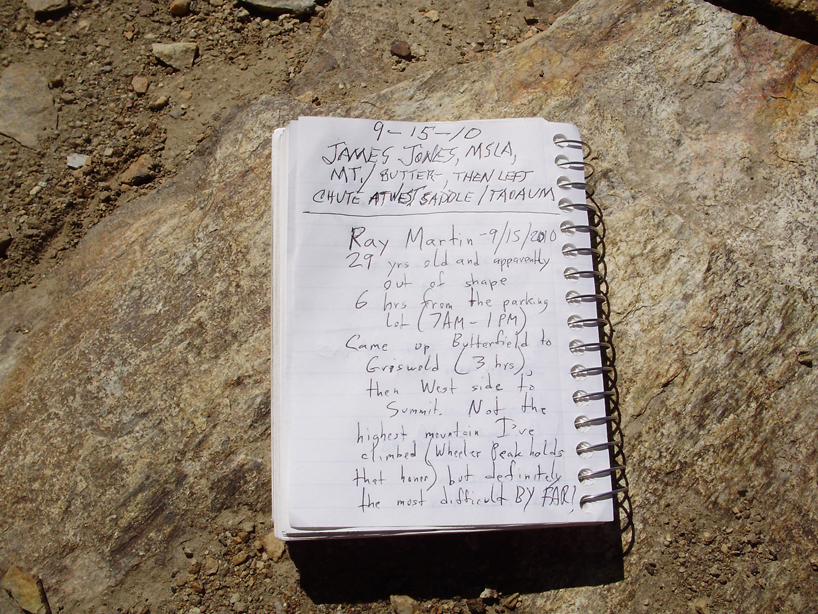 9-15-10
JAMES JONES, MSLA,
MT./ BUTTER-, THEN LEFT
CHUTE AT WEST SADDLE / TADAUM
Ray Martin - 9/15/2010
29 yrs old and apparently
out of shape
6 hrs from the parking
lot (7AM - 1PM)
Came up Butterfield to
Griswold (3 hrs),
then West side to
Summit. Not the
highest mountain I've
climbed (Wheeler Peak holds
that honor) but definitely
the most difficult BY FAR!